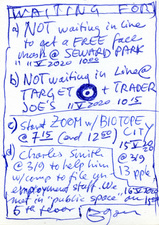 WAITING FOR
a) NOT waiting in line
to get a FREE face
mask @ SEWARD PARK
11 V 2020 1015
b) NOT waiting in Line @
TARGET + TRADER
JOE'S 11 V 2020 1015
c) Start ZOOM w/ BIOTOPE
@ 715 (end 1250) CITY
15 V 20
d) Charles Smith
@ 3/9 to help him
w/ comp to file un-
employment staff. We
met in "public space" on
6th floor
@ 3/9
13 ppl
16 V 2020
1500